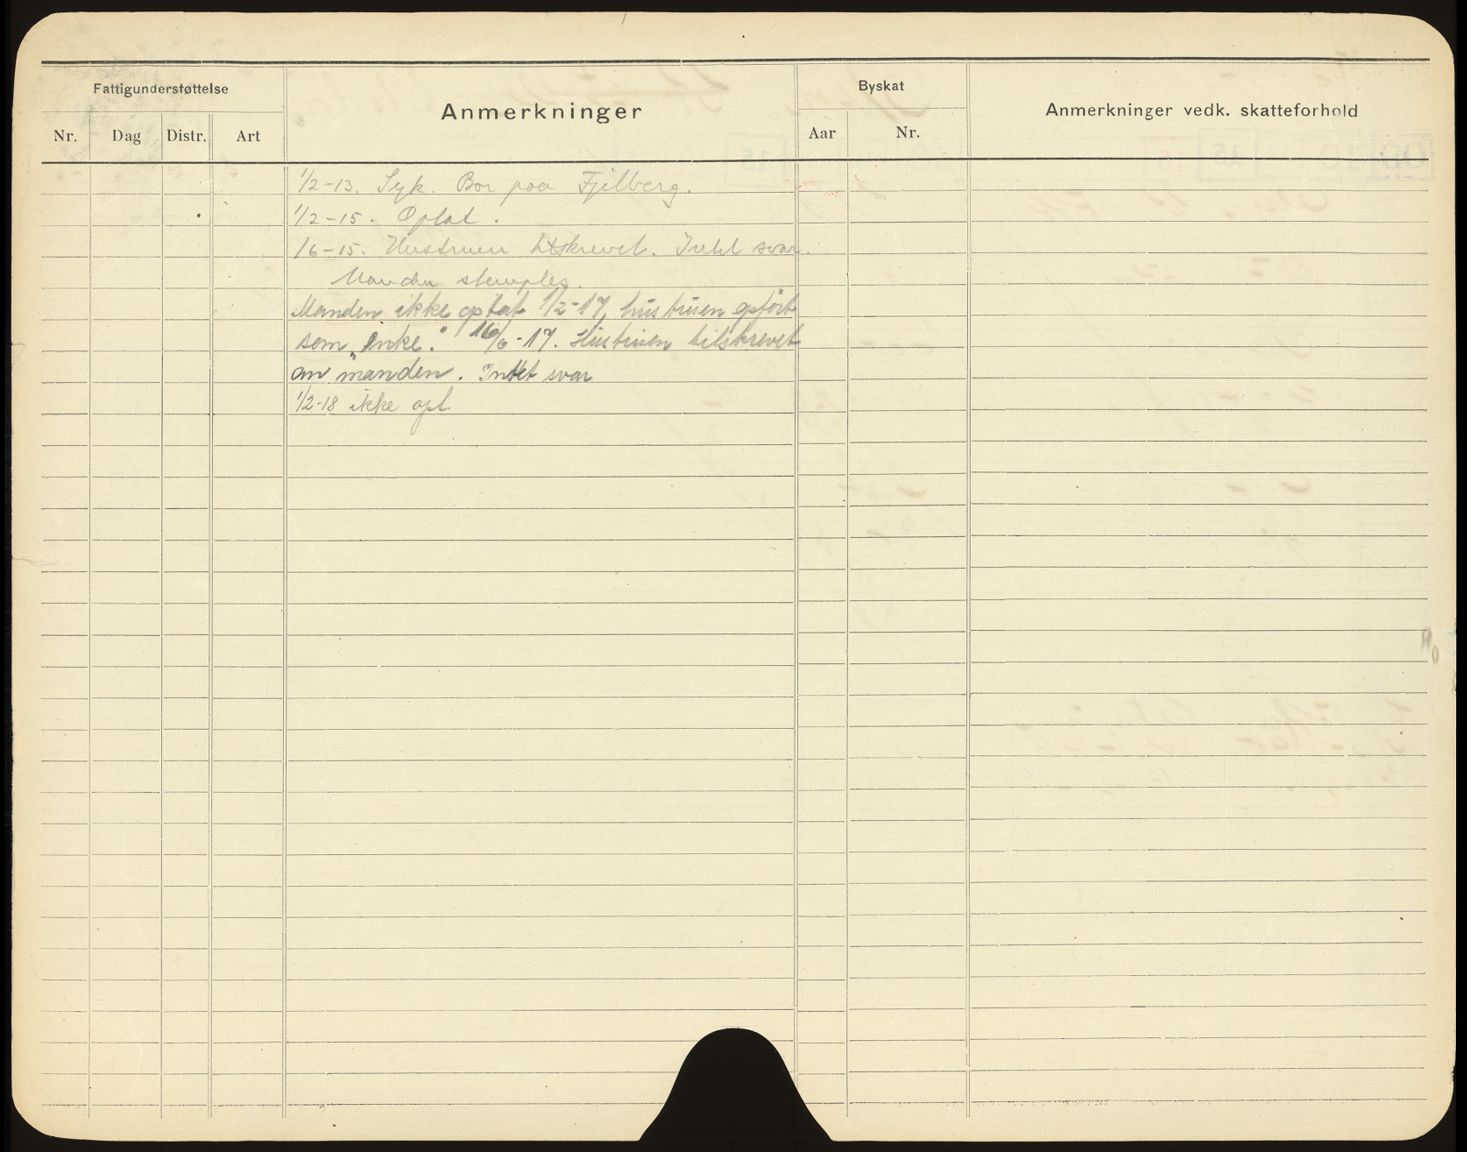 Fattigunderstøttelse
Anmerkninger
Byskat
Anmerkninger vedk. skatteforhold
Nr. Dag Distr. Art
Aar Nr.
1/2-13. Syk. Bor paa Fjelberg.
1/2-15. Optat.
1/6-15. Hustruen tilskrevet. Intet svar.
Manden stemples.
Manden ikke optat 1/2-17, hustruen opført
som „Enke." 16/6-17. Hustruen tilskrevet
om manden. Intet svar
1/2-18 ikke opt